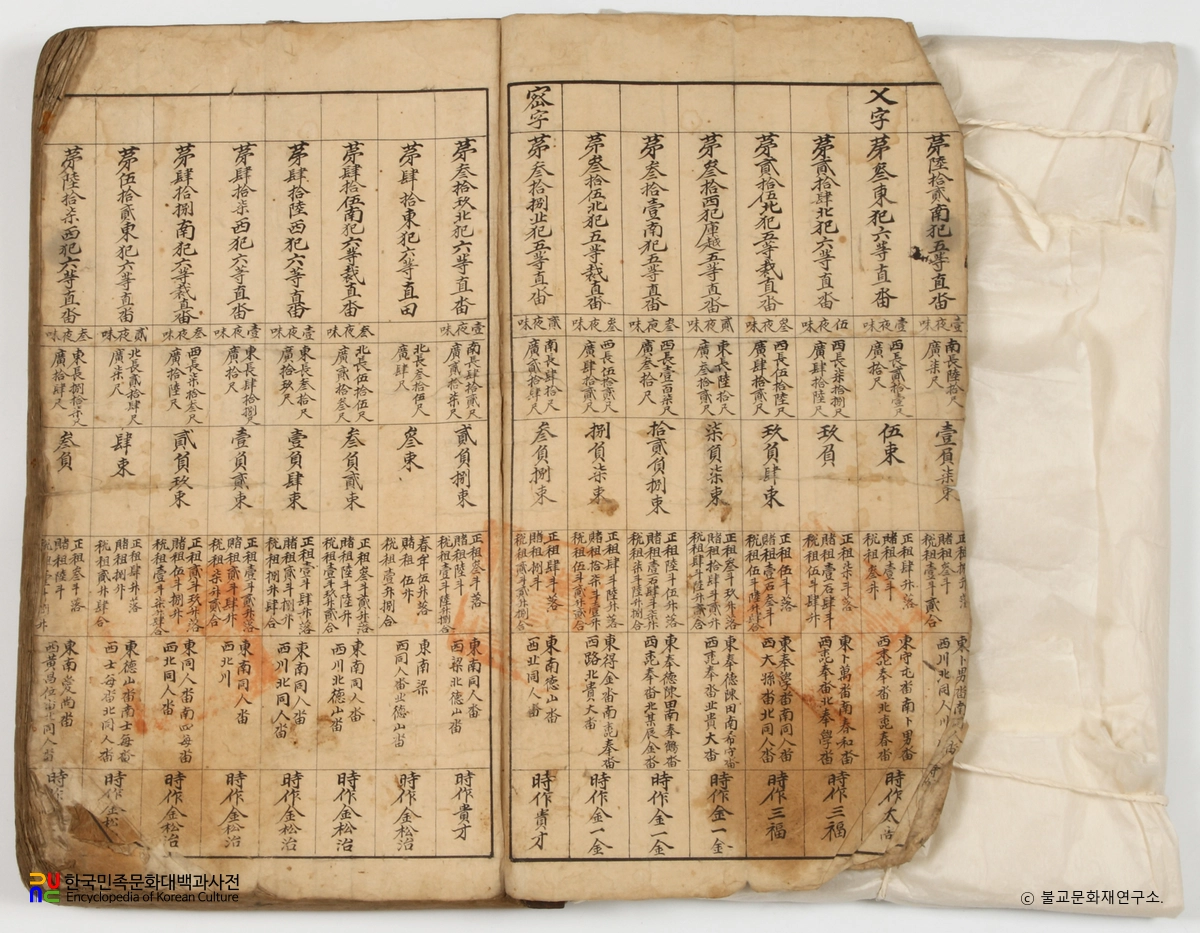 苐陸拾貳南犯五等直畓
壹夜味
南長陸拾尺
廣柒尺
壹負柒束
乂字
苐叅東犯六等直畓
壹夜味
西長貳拾壹尺
廣拾尺
伍束
正租捌升落
賭租壹斗
稅租叅升
東守屯畓南卜男畓
時作太
苐貳拾肆北犯六等直畓
伍夜味
西長柒拾捌尺
廣肆拾陸尺
玖負
正租柒斗落
賭租壹石肆斗
稅租伍斗肆升
時作三福
苐貳拾伍北犯五等裁直畓
叅夜味
西長伍拾陸尺
廣肆拾貳尺
玖負肆束
正租伍斗落
賭租壹石叅斗
稅租伍斗陸升肆合
東奉學畓南同人畓
西大孫畓北同人畓
時作三福
苐叅拾西犯庫越五等直畓
貳夜味
東長陸拾尺
廣叅拾貳尺
柒負柒束
正租叅斗玖升落
賭租拾肆斗肆升
稅租肆斗陸升貳合
時作金一金
苐叅拾壹南犯五等直畓
叅夜味
西長壹百柒尺
廣叅拾尺
拾貳負捌束
正租陸斗伍升落
賭租壹石肆斗柒升
稅租柒斗陸升捌合
時作金一金
苐叅拾伍北犯五等裁直畓
叅夜味
西長伍拾貳尺
廣肆拾貳尺
捌負柒束
正租肆斗陸升落
賭租拾柒斗壹升
稅租伍斗貳升貳合
西路北貴大畓
時作金一金
密字
苐叅拾捌北犯五等直畓
貳夜味
南長肆拾尺
廣貳拾肆尺
叅負捌束
正租肆斗落
賭租捌斗
稅租貳斗貳升捌合
東南德山畓
西北同人畓
時作貴才
苐叅拾玖北犯六等直畓
壹夜味
南長肆拾貳尺
廣貳拾柒尺
貳負捌束
正租叅斗落
賭租陸斗
稅租壹斗陸升捌合
東南同人畓
西梁北德山畓
時作貴才
苐肆拾東犯六等直田
北長叅拾伍尺
廣肆尺
叅束
春牟伍升落
賭租伍升
稅租壹升捌合
東南梁
西同人畓北德山畓
時作金松治
苐肆拾伍南犯六等裁直畓
叅夜味
北長伍拾伍尺
廣貳拾叅尺
叅負貳束
正租叅斗貳升落
賭租陸斗陸升
稅租壹斗玖升貳合
東南同人畓
西川北德山畓
時作金松治
苐肆拾陸西犯六等直畓
壹夜味
東長叅拾尺
廣拾玖尺
壹負肆束
正租壹斗肆升落
賭租貳斗捌升
稅租捌升肆合
東南同人畓
西川北同人畓
時作金松治
苐肆拾柒西犯六等直畓
壹夜味
東長肆拾捌尺
廣拾尺
壹負貳束
正租壹斗貳升落
賭租貳斗肆升
稅租柒升貳合
東南同人畓
西北川
時作金松治
苐肆拾捌南犯六等裁直畓
叅夜味
西長柒拾叅尺
廣拾陸尺
貳負玖束
正租貳斗玖升落
賭租伍斗捌升
稅租壹斗柒升肆合
東同人畓南四每畓
西北同人畓
時作金松治
苐伍拾貳東犯六等直畓
貳夜味
北長貳拾肆尺
廣柒尺
肆束
正租肆升落
賭租捌升
稅租貳升肆合
東德山畓南士每畓
西士每畓北同人畓
時作金松
苐陸拾柒西犯六等直畓
叅夜味
東長捌拾柒尺
廣拾肆尺
叅負
正租叅斗落
賭租陸斗
稅租壹斗捌升
時
한국민족문화대백과사전
Encyclopedia of Korean Culture
ⓒ 불교문화재연구소.